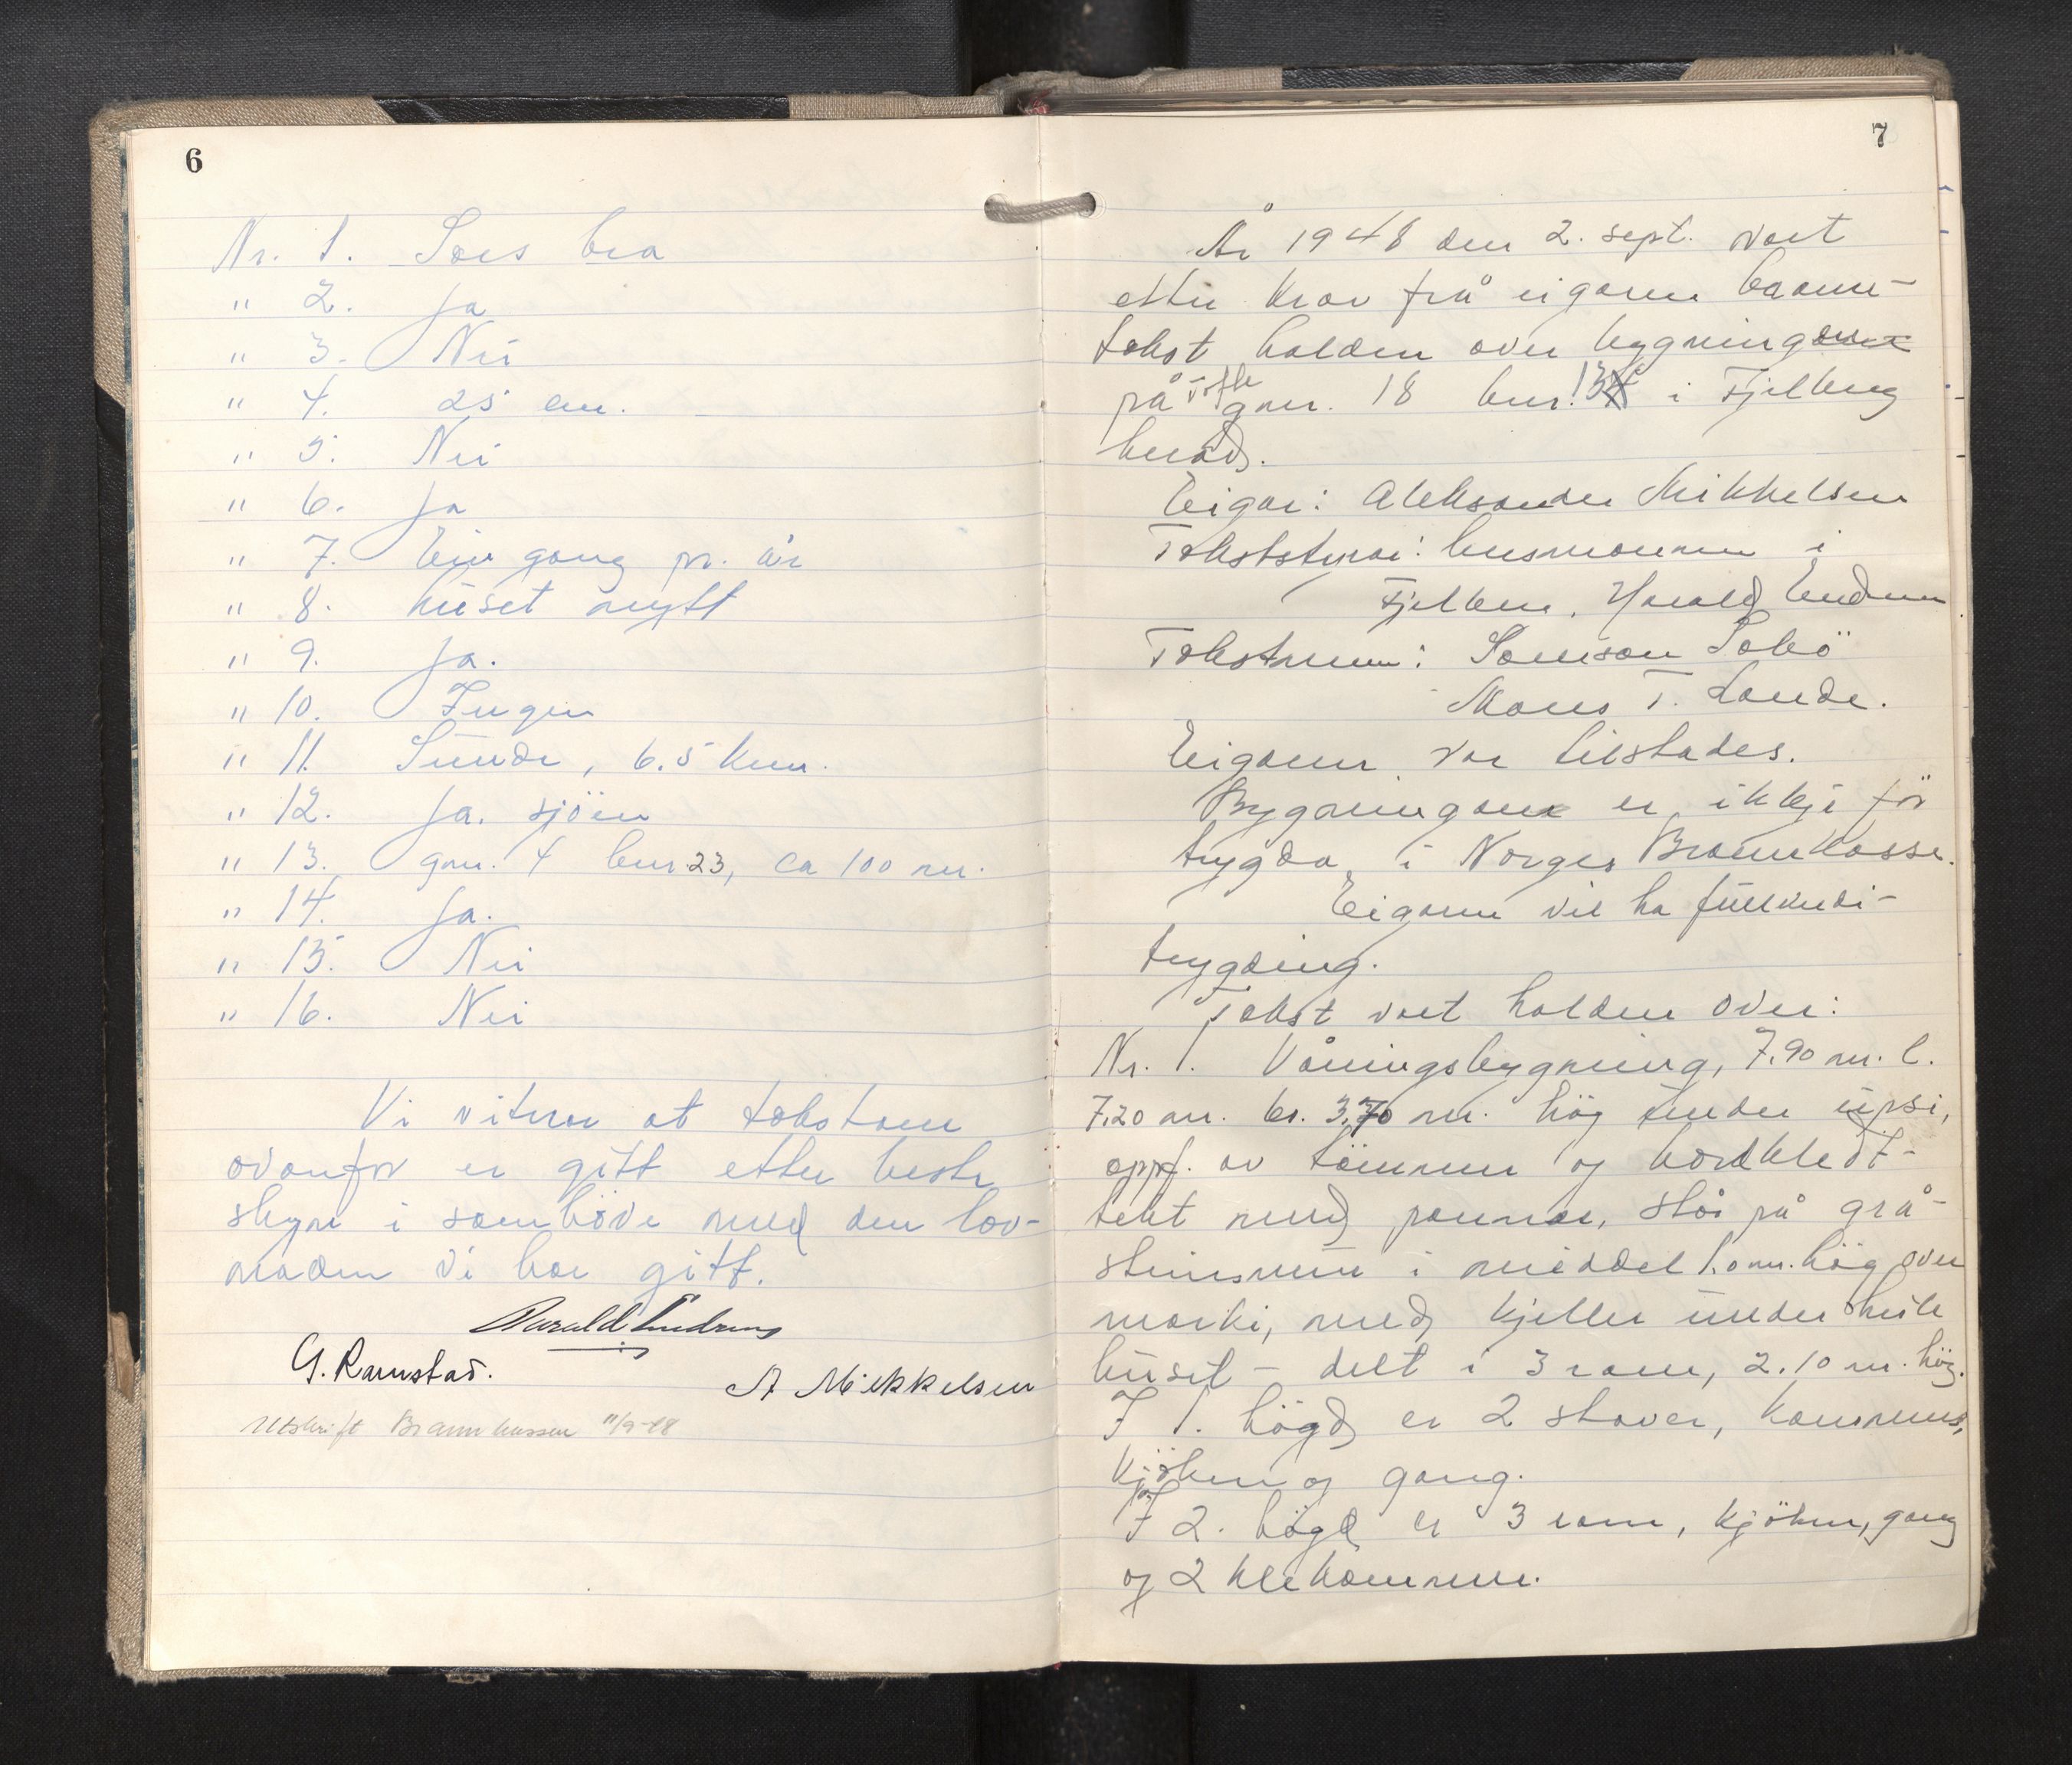 6
Nr. 1. Sers bra
" 2. Ja
" 3. Nei
" 4. 25 cm.
" 5. Nei
" 6. Ja
" 7. Ein gang pr. år
" 8. huset nytt
" 9. Ja.
" 10. Ingen
" 11. Sunde, 6.5 km.
" 12. Ja. sjöen
" 13. gnr. 4 bnr. 23, ca 100 m.
" 14. Ja.
" 15. Nei
" 16. Nei
Vi vitnar at takstane
ovanfor er gitt etter beste
skyn i samhöve med den lov-
naden vi har gitt.
Harald Endresen
G. Ramstad.
A Mikkelsen
Utskrift Brannkassen 11/9-48
7
År 1948 den 2. sept. vart
etter krav frå eigaren brann-
takst halden over bygningane
på Tofte gnr. 18 bnr. 134 i Fjelberg
herad.
Eigar: Aleksander Mikkelsen
Takststyrar: lensmannen i
Fjelberg. Harald Endresen
Takstmenn: Samson Sæbö
Mons T. Lande.
Eigaren var tilstades.
Bygningane er ikkje för
trygda i Norges Brannkasse.
Eigaren vil ha fullverdi-
trygding.
Takst vart halden over:
Nr. 1. Våningsbygning, 7.90 m. l.
7.20 m. br. 3.70 m. hög under upsi,
oppf. av tömmer og bordkledt-
tekt med pannar, står på grå-
steinsmur i middel 1.0 m. hög over
marki, med kjeller under heile
huset - delt i 3 rom, 2.10 m. hög.
I 1. högd er 2 stover, kammers,
kjöken og gang.
I 2. högd er 3 rom, kjöken, gang
og 2 klekammer.